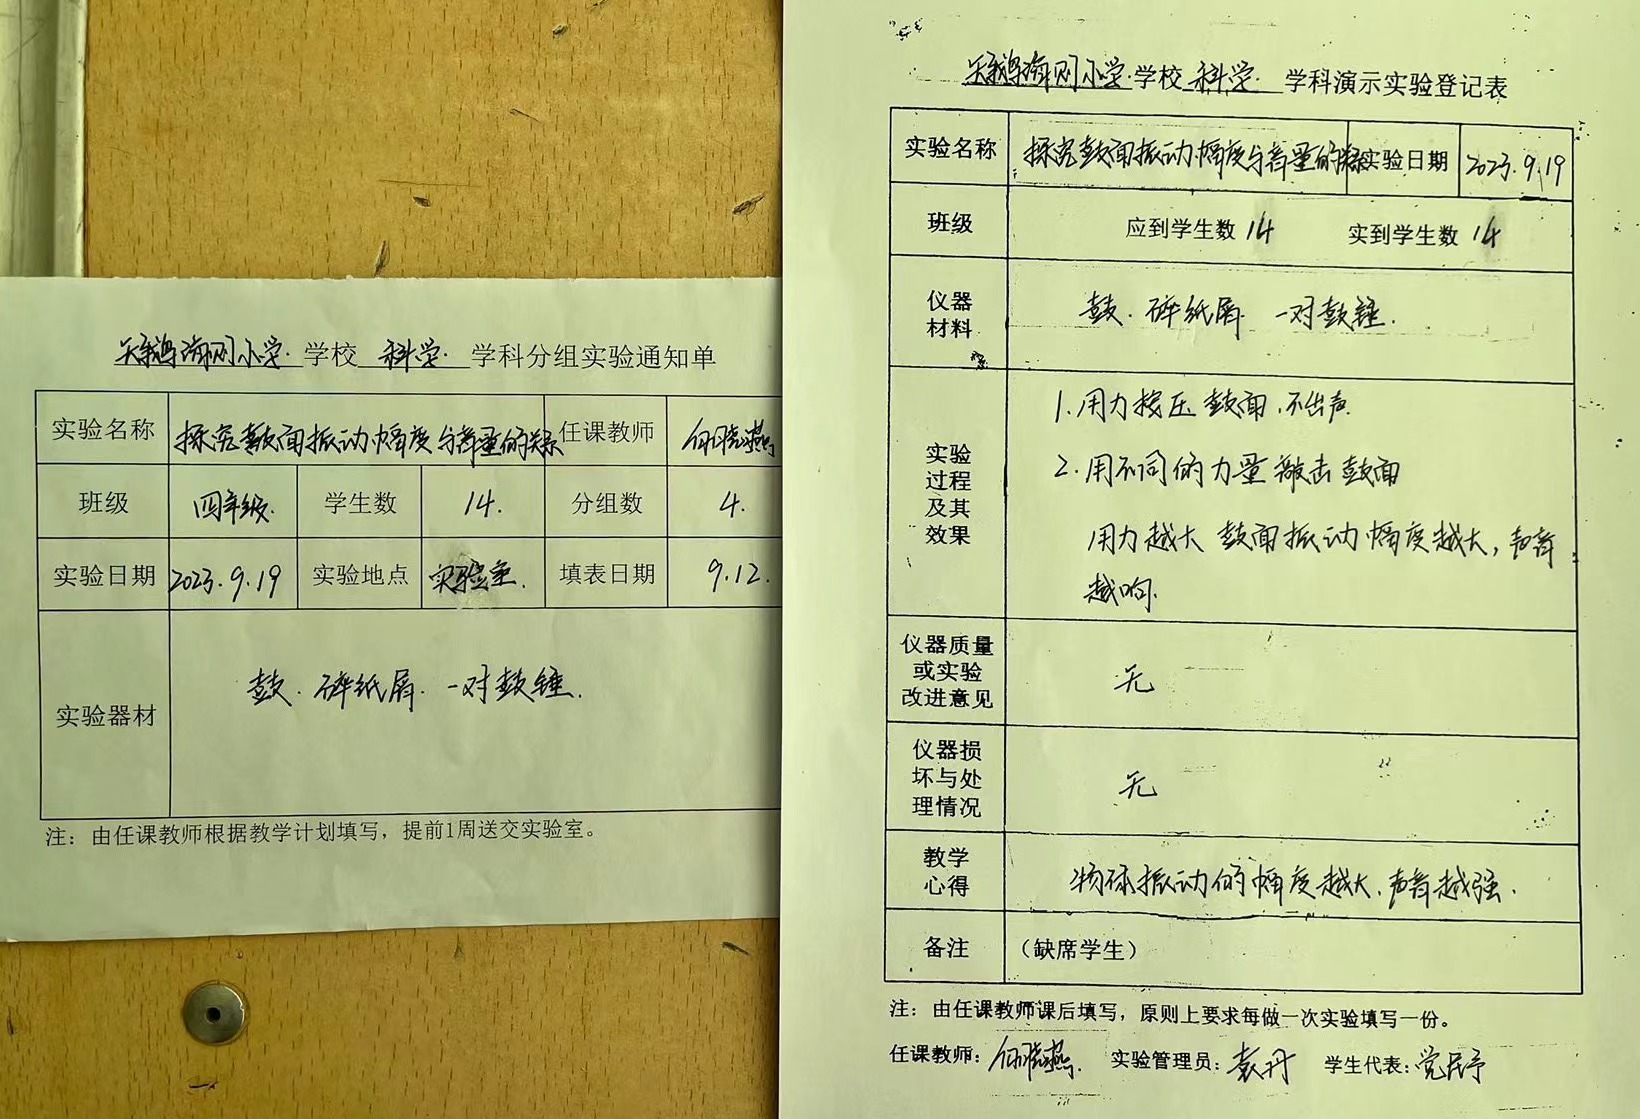 天鹅海则小学 学校 科学 学科分组实验通知单
实验名称 探究鼓面振动幅度与音量的关系 任课教师 何晓燕
班级 四年级. 学生数 14. 分组数 4.
实验日期 2023.9.19 实验地点 实验室. 填表日期 9.12.
实验器材 鼓. 碎纸屑. 一对鼓锤.
注：由任课教师根据教学计划填写，提前1周送交实验室。
天鹅海则小学 学校 科学 学科演示实验登记表
实验名称 探究鼓面振动幅度与音量的关系 实验日期 2023.9.19
班级 应到学生数 14 实到学生数 14
仪器材料 鼓. 碎纸屑. 一对鼓锤.
实验过程及其效果
1.用力按压鼓面.不出声.
2.用不同的力量敲击鼓面
用力越大 鼓面振动幅度越大，声音
越响.
仪器质量或实验改进意见 无
仪器损坏与处理情况 无
教学心得 物体振动的幅度越大.声音越强.
备注 （缺席学生）
注：由任课教师课后填写，原则上要求每做一次实验填写一份。
任课教师：何晓燕. 实验管理员：袁丹 学生代表：党民予